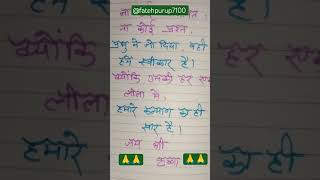 @fatehpurup7100
ना कोई
ना कोई प्रश्न,
प्रभु ने जो दिया वही
हमे स्वीकार है।
क्योंकि उनकी हर एक
लीला मे,
हमारे कल्याण का ही
सार है।
जय श्री
कृष्णा
क्योंकि
हर
लीला
हमारे
का ही